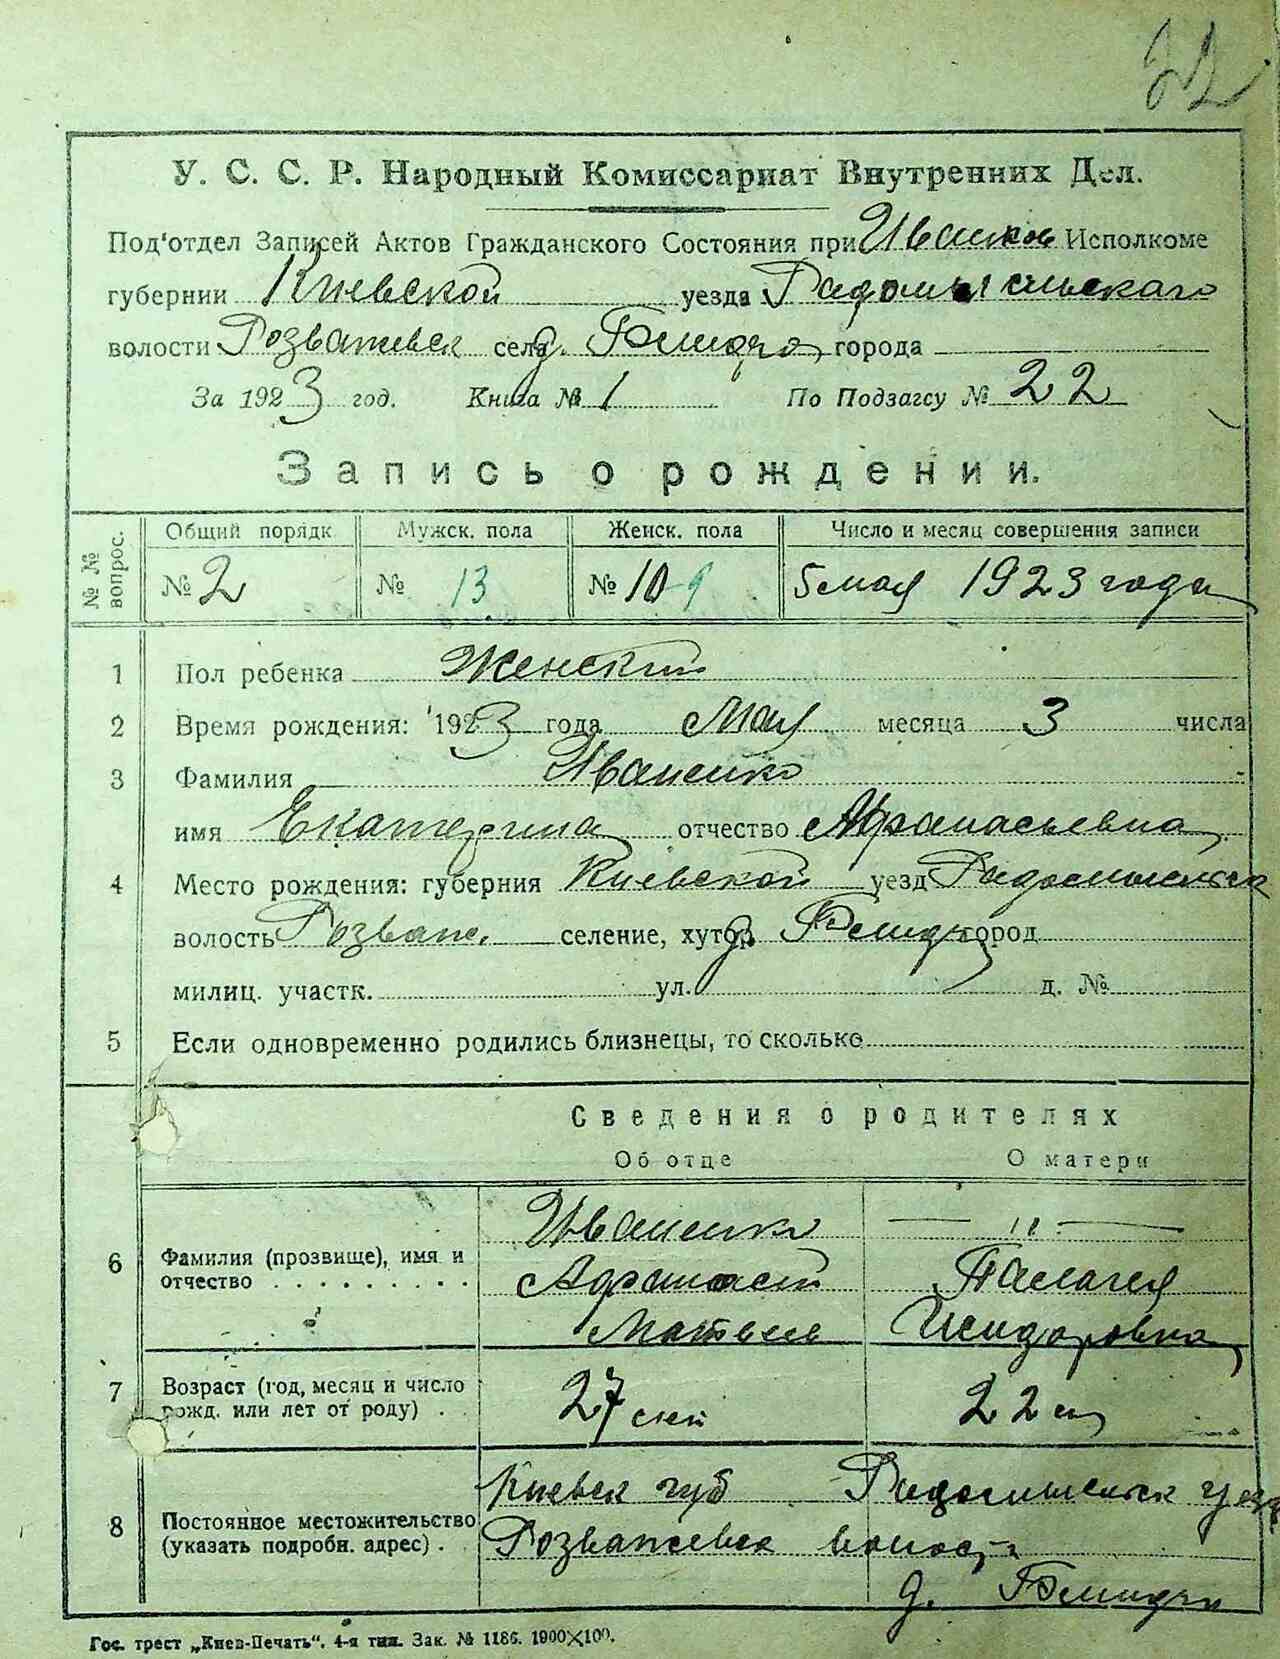 32
У. С. С. Р. Народный Комиссариат Внутренних Дел.
Под'отдел Записей Актов Гражданского Состояния при Иванков Исполкоме
губернии Киевской уезда Радомысльскаго
волости Розважевск села д. города
За 1923 год. Книга № 1 По Подзагсу № 22
Запись о рождении.
№№ вопрос. Общий порядк Мужск. пола Женск. пола Число и месяц совершения записи
№ 2 № 13 № 10 9 5 мая 1923 года
1 Пол ребенка Женский
2 Время рождения: 1923 года Мая месяца 3 числа
3 Фамилия Иваненко
имя Екатерина отчество Афанасьевна
4 Место рождения: губерния Киевской уезд Радомысльск
волость Розваж. селение, хутор д. город
милиц. участк. ул. д. №
5 Если одновременно родились близнецы, то сколько
Сведения о родителях
Об отце О матери
6 Фамилия (прозвище), имя и отчество . . . . . . . . .
Иваненко — " —
Афанасий Палагея
Матвеев Исидоровна
7 Возраст (год, месяц и число рожд. или лет от роду) . .
27 лет 22 л
8 Постоянное местожительство (указать подробн. адрес) .
Киевск губ Радомысльск уезд
Розважевск волости
д.
Гос. трест „Киев-Печать“. 4-я тип. Зак. № 1186. 1900×100.